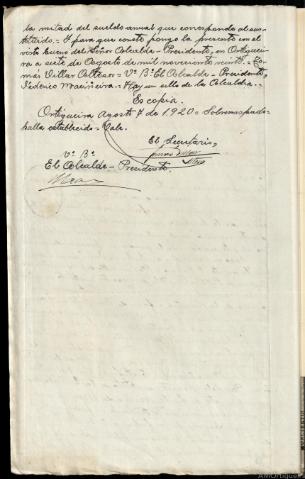 la mitad del sueldo anual que corresponda al secretario.
= Y para que conste pongo la presente con el
visto bueno del Señor Alcalde-Presidente, en Ortigueira
a siete de Agosto de mil novecientos veinte. =
más Villar =V.º B.º El Alcalde-Presidente,
Federico Maciñeira.= Hay un sello de la Alcaldia..
Es copia.
Ortigueira Agosto 7 de 1920=
halla establecido= Vale.
El Secretario,
Vº Bº
El Alcalde-Presidente.
AMOrtigueira